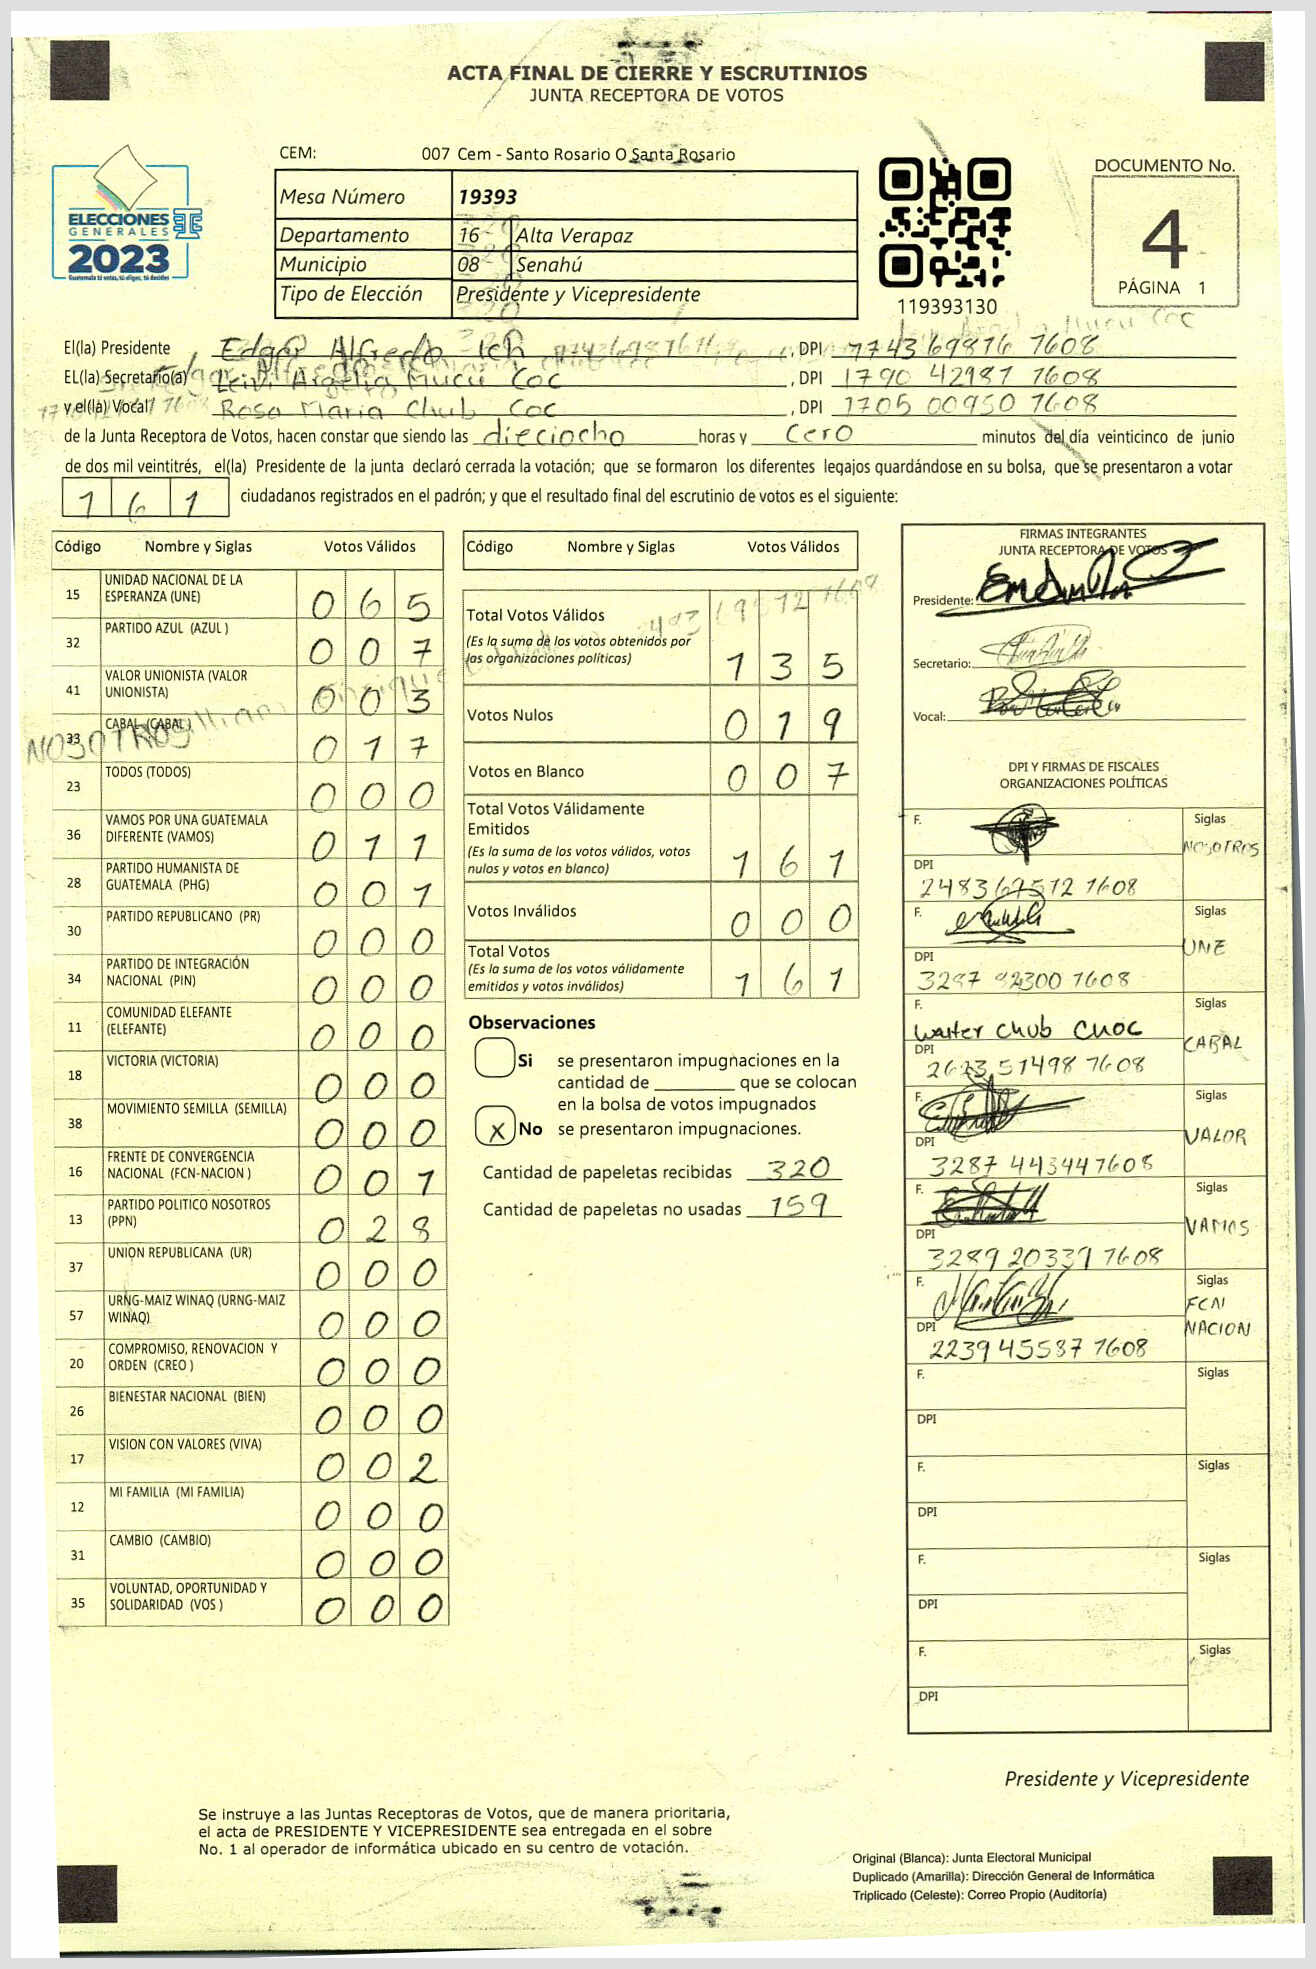 ACTA FINAL DE CIERRE Y ESCRUTINIOS
JUNTA RECEPTORA DE VOTOS
CEM: 007 Cem - Santo Rosario O Santa Rosario
ELECCIONES
GENERALES
2023
Guatemala tú votas, tú eliges, tú decides
Mesa Número 19393
Departamento 16 Alta Verapaz
Municipio 08 Senahú
Tipo de Elección Presidente y Vicepresidente
119393130
DOCUMENTO No.
4
PÁGINA 1
El(la) Presidente Edgar Alfredo Ich , DPI 77436 9876 1608
EL(la) Secretario(a) Leivi Argelia Mucú Coc , DPI 1790 42987 1608
y el(la) Vocal Rosa Maria Chub Coc , DPI 1705 00950 1608
de la Junta Receptora de Votos, hacen constar que siendo las dieciocho horas y cero minutos del día veinticinco de junio
de dos mil veintitrés, el(la) Presidente de la junta declaró cerrada la votación; que se formaron los diferentes legajos guardándose en su bolsa, que se presentaron a votar
161 ciudadanos registrados en el padrón; y que el resultado final del escrutinio de votos es el siguiente:
Código Nombre y Siglas Votos Válidos
15 UNIDAD NACIONAL DE LA ESPERANZA (UNE) 0 6 5
32 PARTIDO AZUL (AZUL ) 0 0 7
41 VALOR UNIONISTA (VALOR UNIONISTA) 0 0 3
33 CABAL (CABAL ) 0 1 7
NOSOTROS
23 TODOS (TODOS) 0 0 0
36 VAMOS POR UNA GUATEMALA DIFERENTE (VAMOS) 0 1 1
28 PARTIDO HUMANISTA DE GUATEMALA (PHG) 0 0 1
30 PARTIDO REPUBLICANO (PR) 0 0 0
34 PARTIDO DE INTEGRACIÓN NACIONAL (PIN) 0 0 0
11 COMUNIDAD ELEFANTE (ELEFANTE) 0 0 0
18 VICTORIA (VICTORIA) 0 0 0
38 MOVIMIENTO SEMILLA (SEMILLA) 0 0 0
16 FRENTE DE CONVERGENCIA NACIONAL (FCN-NACION ) 0 0 1
13 PARTIDO POLITICO NOSOTROS (PPN) 0 2 8
37 UNION REPUBLICANA (UR) 0 0 0
57 URNG-MAIZ WINAQ (URNG-MAIZ WINAQ) 0 0 0
20 COMPROMISO, RENOVACION Y ORDEN (CREO ) 0 0 0
26 BIENESTAR NACIONAL (BIEN) 0 0 0
17 VISION CON VALORES (VIVA) 0 0 2
12 MI FAMILIA (MI FAMILIA) 0 0 0
31 CAMBIO (CAMBIO) 0 0 0
35 VOLUNTAD, OPORTUNIDAD Y SOLIDARIDAD (VOS ) 0 0 0
Código Nombre y Siglas Votos Válidos
Total Votos Válidos
(Es la suma de los votos obtenidos por las organizaciones políticas) 1 3 5
Votos Nulos 0 1 9
Votos en Blanco 0 0 7
Total Votos Válidamente Emitidos
(Es la suma de los votos válidos, votos nulos y votos en blanco) 1 6 1
Votos Inválidos 0 0 0
Total Votos
(Es la suma de los votos válidamente emitidos y votos inválidos) 1 6 1
Observaciones
Si se presentaron impugnaciones en la
cantidad de ________ que se colocan
en la bolsa de votos impugnados
X No se presentaron impugnaciones.
Cantidad de papeletas recibidas 320
Cantidad de papeletas no usadas 159
FIRMAS INTEGRANTES
JUNTA RECEPTORA DE VOTOS
Presidente:
Secretario:
Vocal:
DPI Y FIRMAS DE FISCALES
ORGANIZACIONES POLÍTICAS
F. Siglas NOSOTROS
DPI 2483 69512 1608
F. Siglas UNE
DPI 3287 92300 1608
F. Walter Chub CUOC Siglas CABAL
DPI 2623 51498 1608
F. Siglas VALOR
DPI 3287 44344 1608
F. Siglas VAMOS
DPI 3289 20339 1608
F. Siglas FCN NACION
DPI 2239 45587 1608
F. Siglas
DPI
F. Siglas
DPI
F. Siglas
DPI
F. Siglas
DPI
Presidente y Vicepresidente
Se instruye a las Juntas Receptoras de Votos, que de manera prioritaria,
el acta de PRESIDENTE Y VICEPRESIDENTE sea entregada en el sobre
No. 1 al operador de informática ubicado en su centro de votación.
Original (Blanca): Junta Electoral Municipal
Duplicado (Amarilla): Dirección General de Informática
Triplicado (Celeste): Correo Propio (Auditoría)